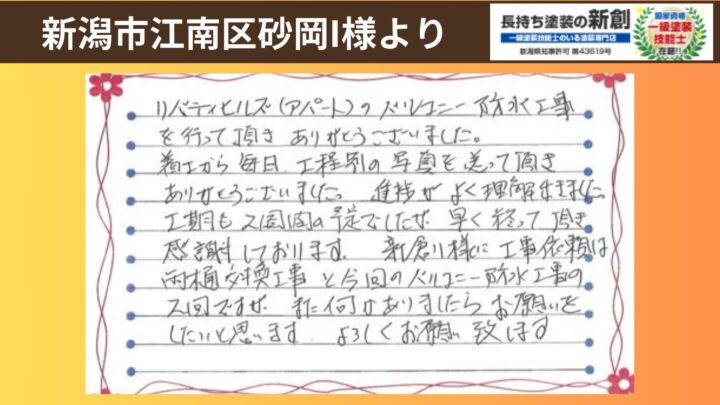 新潟市江南区砂岡I様より
長持ち塗装の新創
一級塗装技能士のいる塗装専門店
新潟県知事許可 第43619号
国家資格
一級塗装
技能士
在籍!!
リバティヒルズ(アパート)のバルコニー防水工事
を行って頂き ありがとうございました。
着工から毎日、工程別の写真を送って頂き
ありがとうございました。進捗がよく理解出来ました。
工期も2週間の予定でしたが、早く終って頂き
感謝しております。新創様に工事依頼は
雨樋交換工事と今回のバルコニー防水工事の
2回ですが、また何かありましたらお願いを
したいと思います。よろしくお願い致します